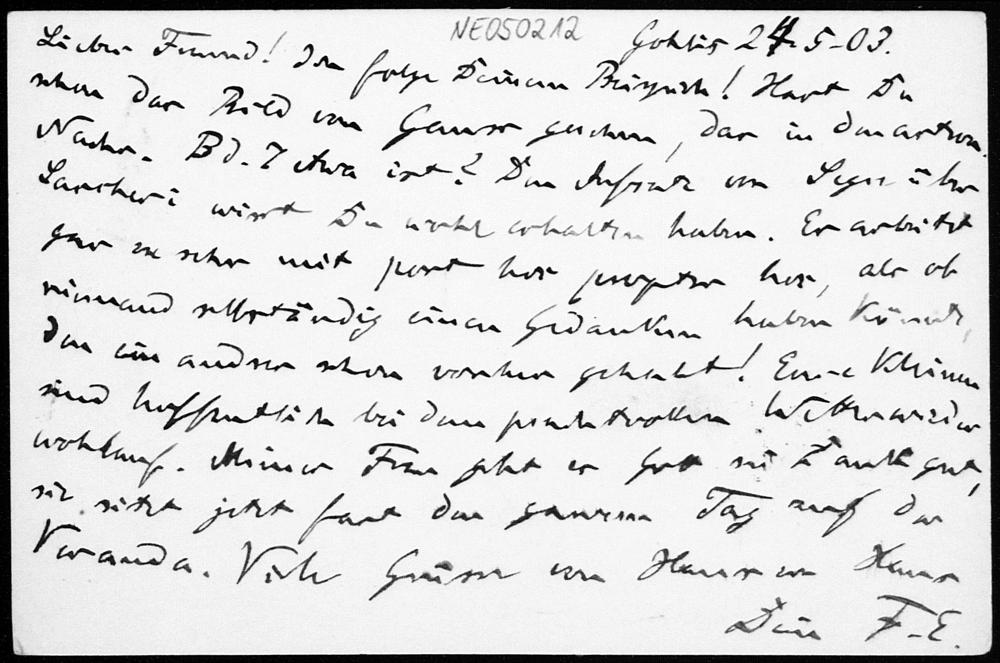 NE050212 Gohlis 24-5-03.
Lieber Freund! Ich folge Deinem Beispiele! Hast Du
schon das Bild von Gauss gesehen, das in den astron.
Nachr. Bd. 7 etwa ist? Den Aufsatz von Segre über
Saccheri wirst Du wohl erhalten haben. Er arbeitet
gar zu sehr mit post hoc propter hoc, als ob
niemand selbständig einen Gedanken haben könnte,
den ein andrer schon vorher gehabt! Eure Kleinen
sind hoffentlich bei dem prachtvollen Wetter wieder
wohlauf. Meiner Frau geht es Gott sei Dank gut,
sie sitzt jetzt fast den ganzen Tag auf der
Veranda. Viele Grüsse von Haus zu Haus
Dein F-E.